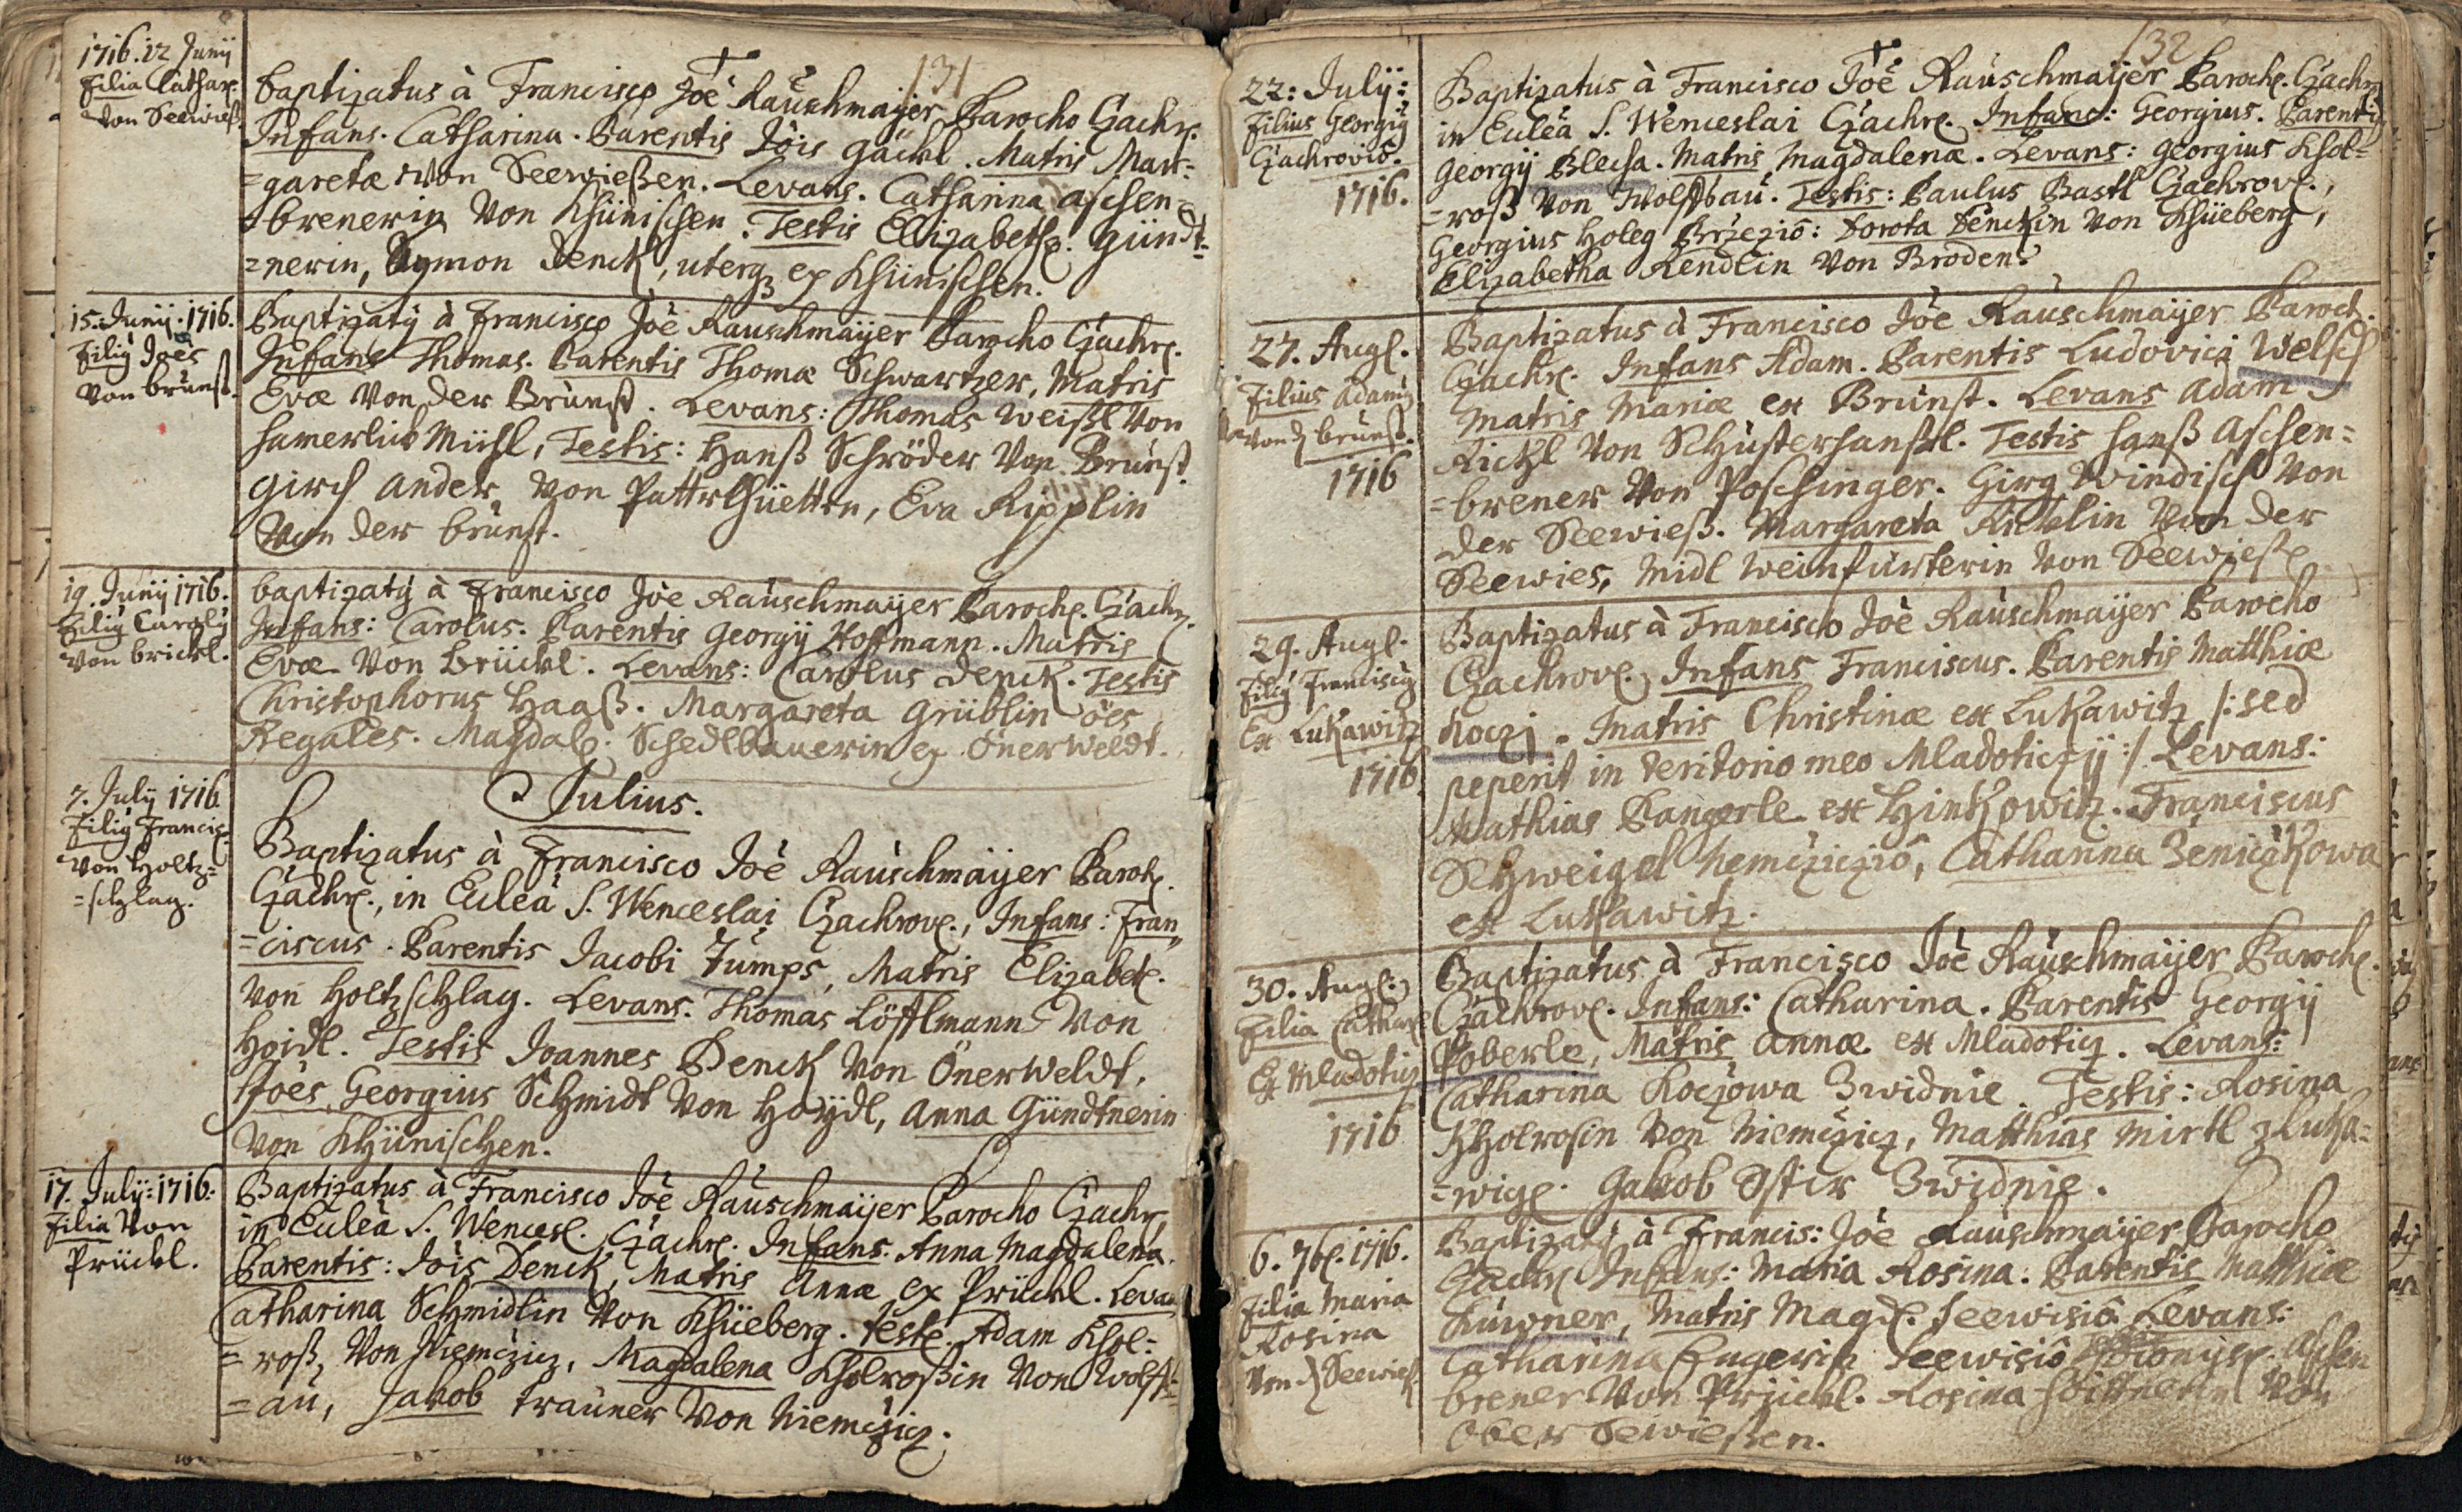 131
1716. 12 Junij
Filia Cathar.
Von Seewieß.
Baptizatus à Francisco Joë Rauschmaijer Parocho Czachr.
Infans. Catharina. Parentis Jöis Gäckl. Matris Mar=
=garetæ Von Seewießen. Levans. Catharina Aschen=
=brenerin Von Khünischen. Testis Elizabeth. Gündt=
=nerin, Symon Denck, uterq3 ex Khünischen.
15. Junij. 1716.
Filiy Joës
Von brunst.
Baptizaty à Francisco Joë Rauschmaijer Parocho Czachr.
Infans Thomas. Parentis Thomæ Schwartzer, Matris
Evæ Von der Brunst. Levans: Thomas Weißl Von
Hamerlis Mühl, Testis: Hanß Schröder Von Brunst
Girch Ander Von Pattrhüetten, Eva Kipplin
Von der brunst.
19. Junij 1716.
Filiy Caroly
Von brickl.
baptizaty à Francisco Joë Rauschmaijer Paroch. Czachr.
Infans: Carolus. Parentis Georgij Hoffmann. Matris
Evæ Von Brückl. Levans: Carolus Denck. Testis
Christophorus Haaß. Margareta Grüblin öes
Regales. Magdal. Schedlbauerin ex Önerweldt.
Julius.
7. July 1716
Filiy Francis.
Von Holtz=
=schlag.
Baptizatus à Francisco Joë Rauschmaijer Paroch.
Czachr., in Eccleä S. Wenceslai Czachrov., Infans: Fran
=ciscus. Parentis Jacobi Zumps, Matris Elizabet.
Von Holtzschlag. Levans. Thomas Löfflmann Von
Hoidl. Testis Joannes Denck Von Önerweldt.
Joës Georgius Schmidt Von Hoydl, Anna Gündtnerin
Von Khünischen.
17. July: 1716:
Filia Von
Prückl.
Baptizatus à Francisco Joë Rauschmaijer Parocho Czachr.
in Eccleä S. Wencesl. Czachr. Infans. Anna Magdalena.
Parentis: Jöis Denck, Matris Annæ ex Prückl. Levan
Catharina Schmidlin Von Khüeberg. Test. Adam Khol=
=roß, Von Niemczicz, Magdalena Kholroßin Von Wolff=
=au, Jakob Trauner Von Niemczicz.
132
22: July:
Filius Georgiy
Czachrovio.
1716.
Baptizatus à Francisco Joë Rauschmaijer Paroch. Czachr.
in Eccleä S. Wenceslai Czachr. Infans: Georgius. Parentis
Georgij Blecha. Matris Magdalenæ. Levans: Georgius Khol=
=roß Von Wolffbau. Testis: Paulus Bastl Czachrov.,
Georgius Holeg Brzezio: Dorota Denckin Von Khüeberg,
Elizabetha Rendlin Von Broden.
27. Aug.
Filius Adami
Von d brunst.
1716
Baptizatus à Francisco Joë Rauschmaijer Paroch.
Czachr. Infans Adam. Parentis Ludovici Welsch
Matris Mariæ ex Brunst. Levans Adam
Rickl Von Schusterhanßl. Testis Hanß Aschen=
=brener Von Poschinger. Girg Windisch Von
der Seewieß. Margareta Ricklin Von der
Seewies, Midl Weinfurterin Von Seewieß.
29. Aug.
Filiy Franciscy
Ex Lukawitz
1716
Baptizatus à Francisco Joë Rauschmaijer Parocho
Czachrov. Infans Franciscus. Parentis Matthiæ
Koczj. Matris Christinæ ex Lukawitz /: sed
peperit in teritorio meo Mladoticzij :/ Levans:
Mathias Pangerle ex Hinkowitz. Franciscus
Schweigel Nemcziczio, Catharina Zeniczkowa
ex Lukawitz.
30. Aug.
Filia Cathar.
Ex Mladoticz
1716
Baptizatus à Francisco Joë Rauschmaijer Paroch.
Czachrov. Infans: Catharina. Parentis Georgij
Poberle, Matris Annæ ex Mladoticz. Levans:
Catharina Koczowa Zwidnie. Testis: Rosina
Kholrosin Von Niemczicz, Matthias Mirtl z Luka=
=wicz. Gakob Ostir Zwidnie.
6. 7b. 1716.
Filia Maria
Rosina
Von d Seewieß.
Baptizaty à Francis: Joë Rauschmaijer Parocho
Czachr. Infans: Maria Rosina. Parentis Matthiæ
Kurner, Matris Magd. Seewisio Levans:
Catharina Seewisio Dionys. Aschen
brener Von Prückl. Rosina Von
Ober Sewießen.